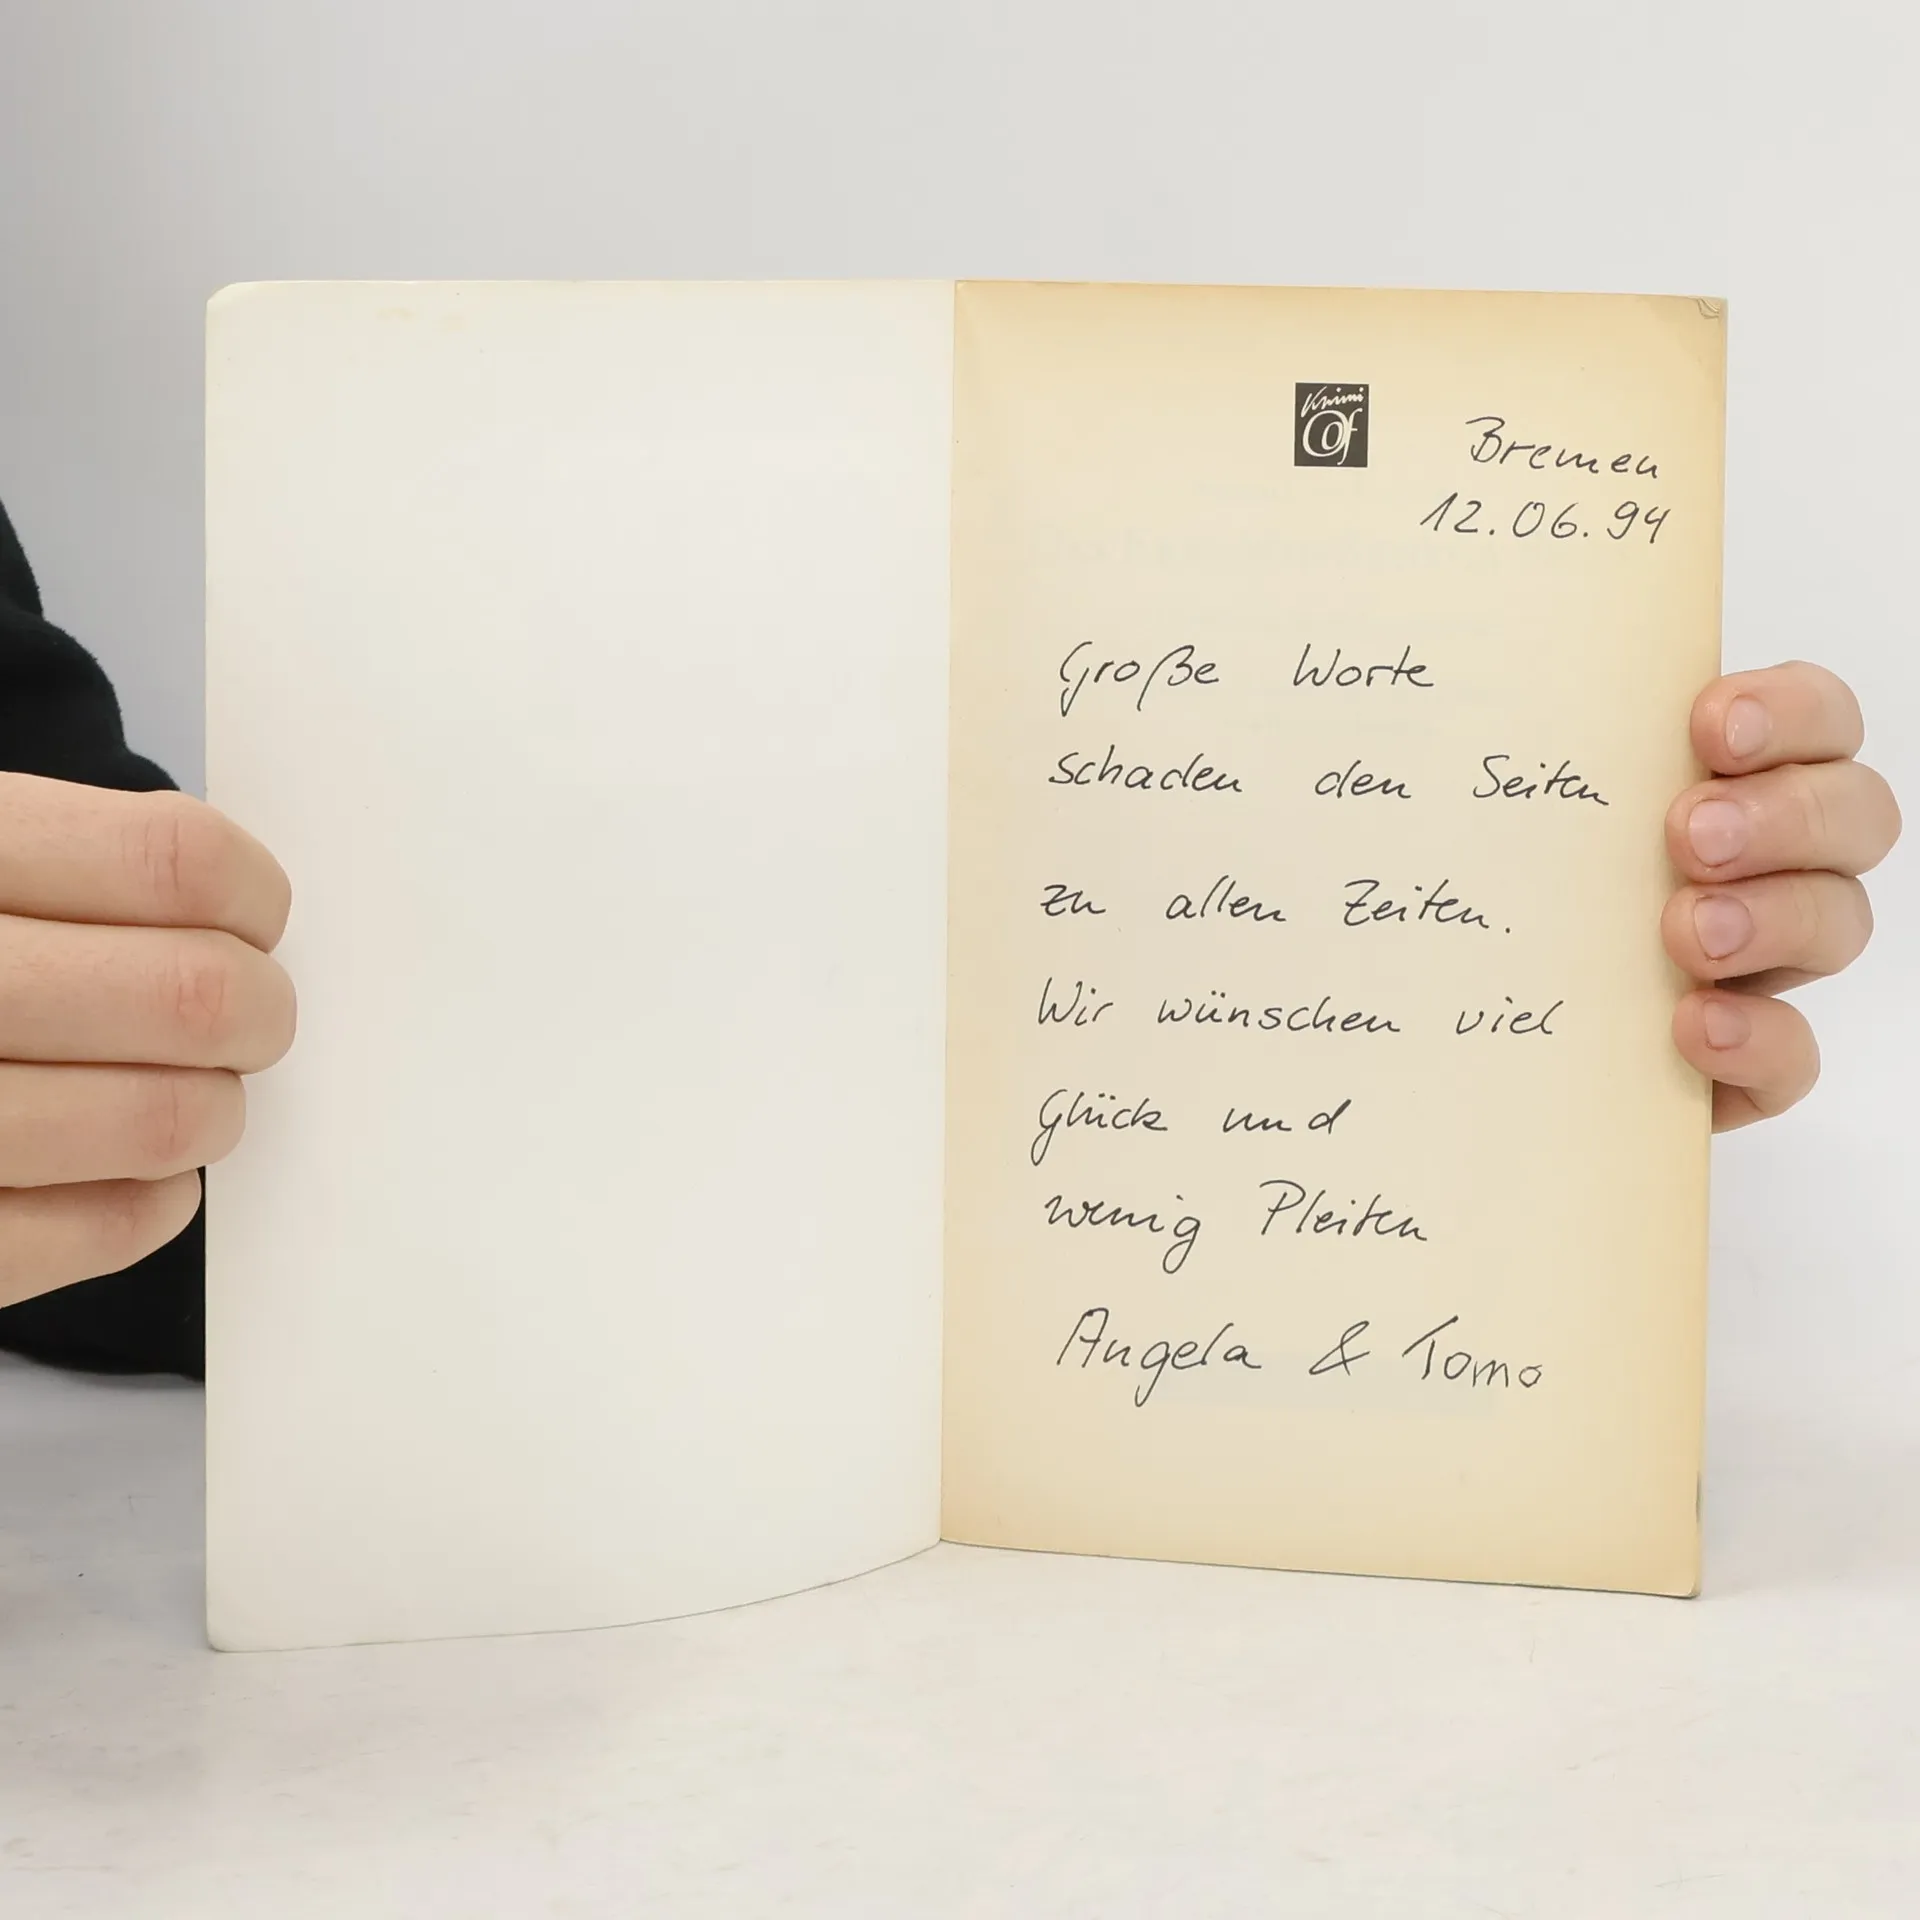 Krimi
Cof
Bremen
12.06.94
Große Worte
schaden den Seiten
zu allen Zeiten.
Wir wünschen viel
Glück und
wenig Pleiten
Angela & Tomo